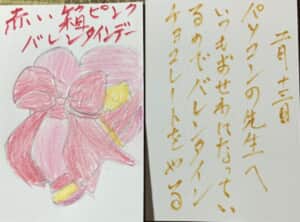 赤い箱ピンク
バレンタインデー
二月十三日
パソコンの先生へ
いつもおせわになってい
るのでバレンタイン
チョコレートをやる